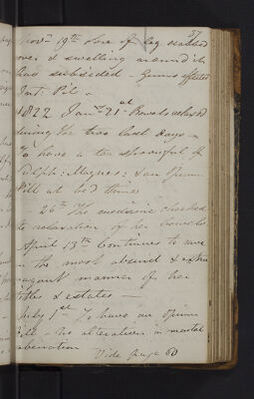 57
Novr 19th Sore of leg scabbed
over & swelling around it
has subsided - Gums affected
Int: Pil -
1822 Jany 21st Bowels relax'd
during the two last days -
To have a tea spoonful of
Sulph: Magnes: & an Opium
Pill at bed time
26th The medicine checked
the relaxation of her bowels
April 13th Continues to rave
in the most absurd & extra
vagant manner of her
titles & estates -
July 1st To have an Opium
Pill - No alteration in mental
aberration
Vide page 60